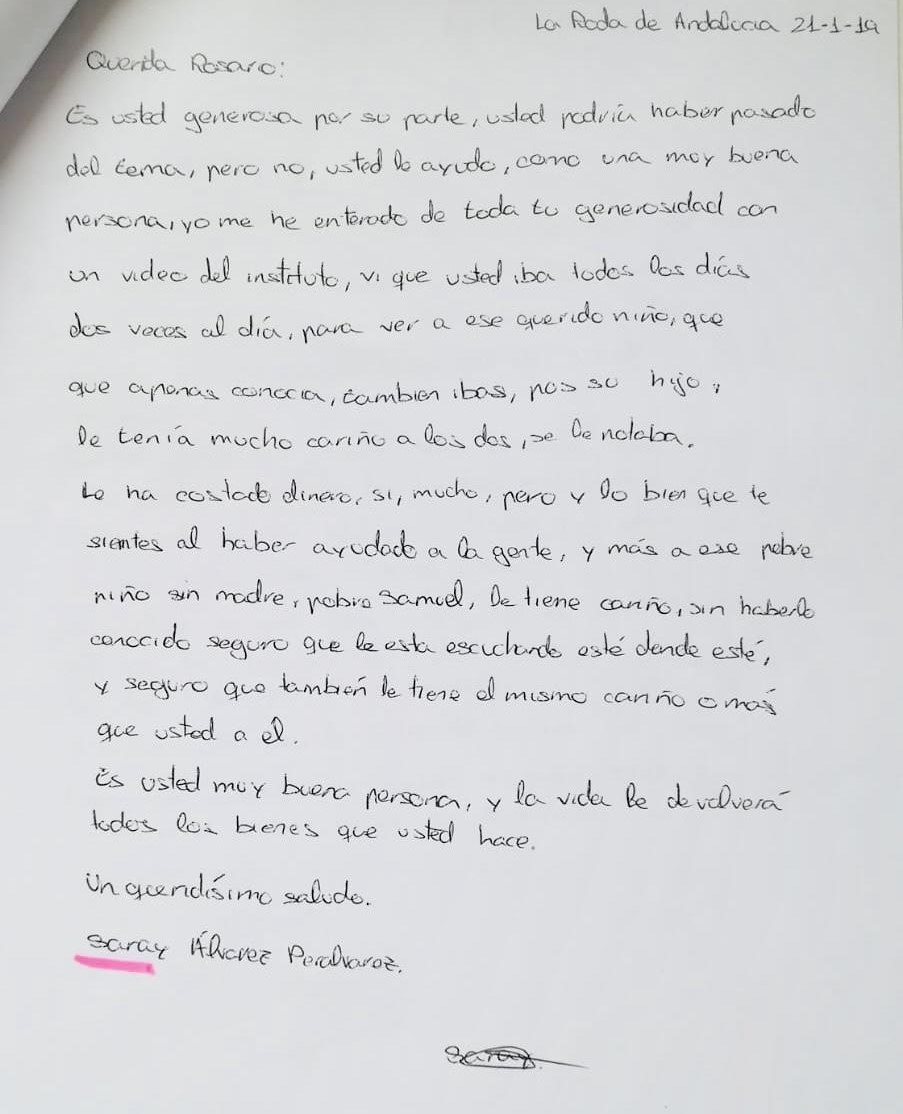 La Roda de Andalucia 21-1-19
Querida Rosario:
Es usted generosa por su parte, usted podría haber pasado
del tema, pero no, usted le ayudo, como una muy buena
persona, yo me he enterado de toda tu generosidad con
un video del instituto, vi que usted iba todos los días
dos veces al día, para ver a ese querido niño, que
que apenas conocia, tambien ibas, pos su hijo,
le tenía mucho cariño a los dos, se le notaba.
Le ha costado dinero, si, mucho, pero y lo bien que te
sientes al haber ayudado a la gente, y más a ese pobre
niño sin madre, pobre Samuel, le tiene cariño, sin haberlo
conocido seguro que le esta escuchando esté donde esté,
y seguro que también le tiene el mismo cariño o más
que usted a el.
Es usted muy buena persona, y la vida le devolverá
todos los bienes que usted hace.
Un queridísimo saludo.
Saray Álvarez Peralvarez.
Saray